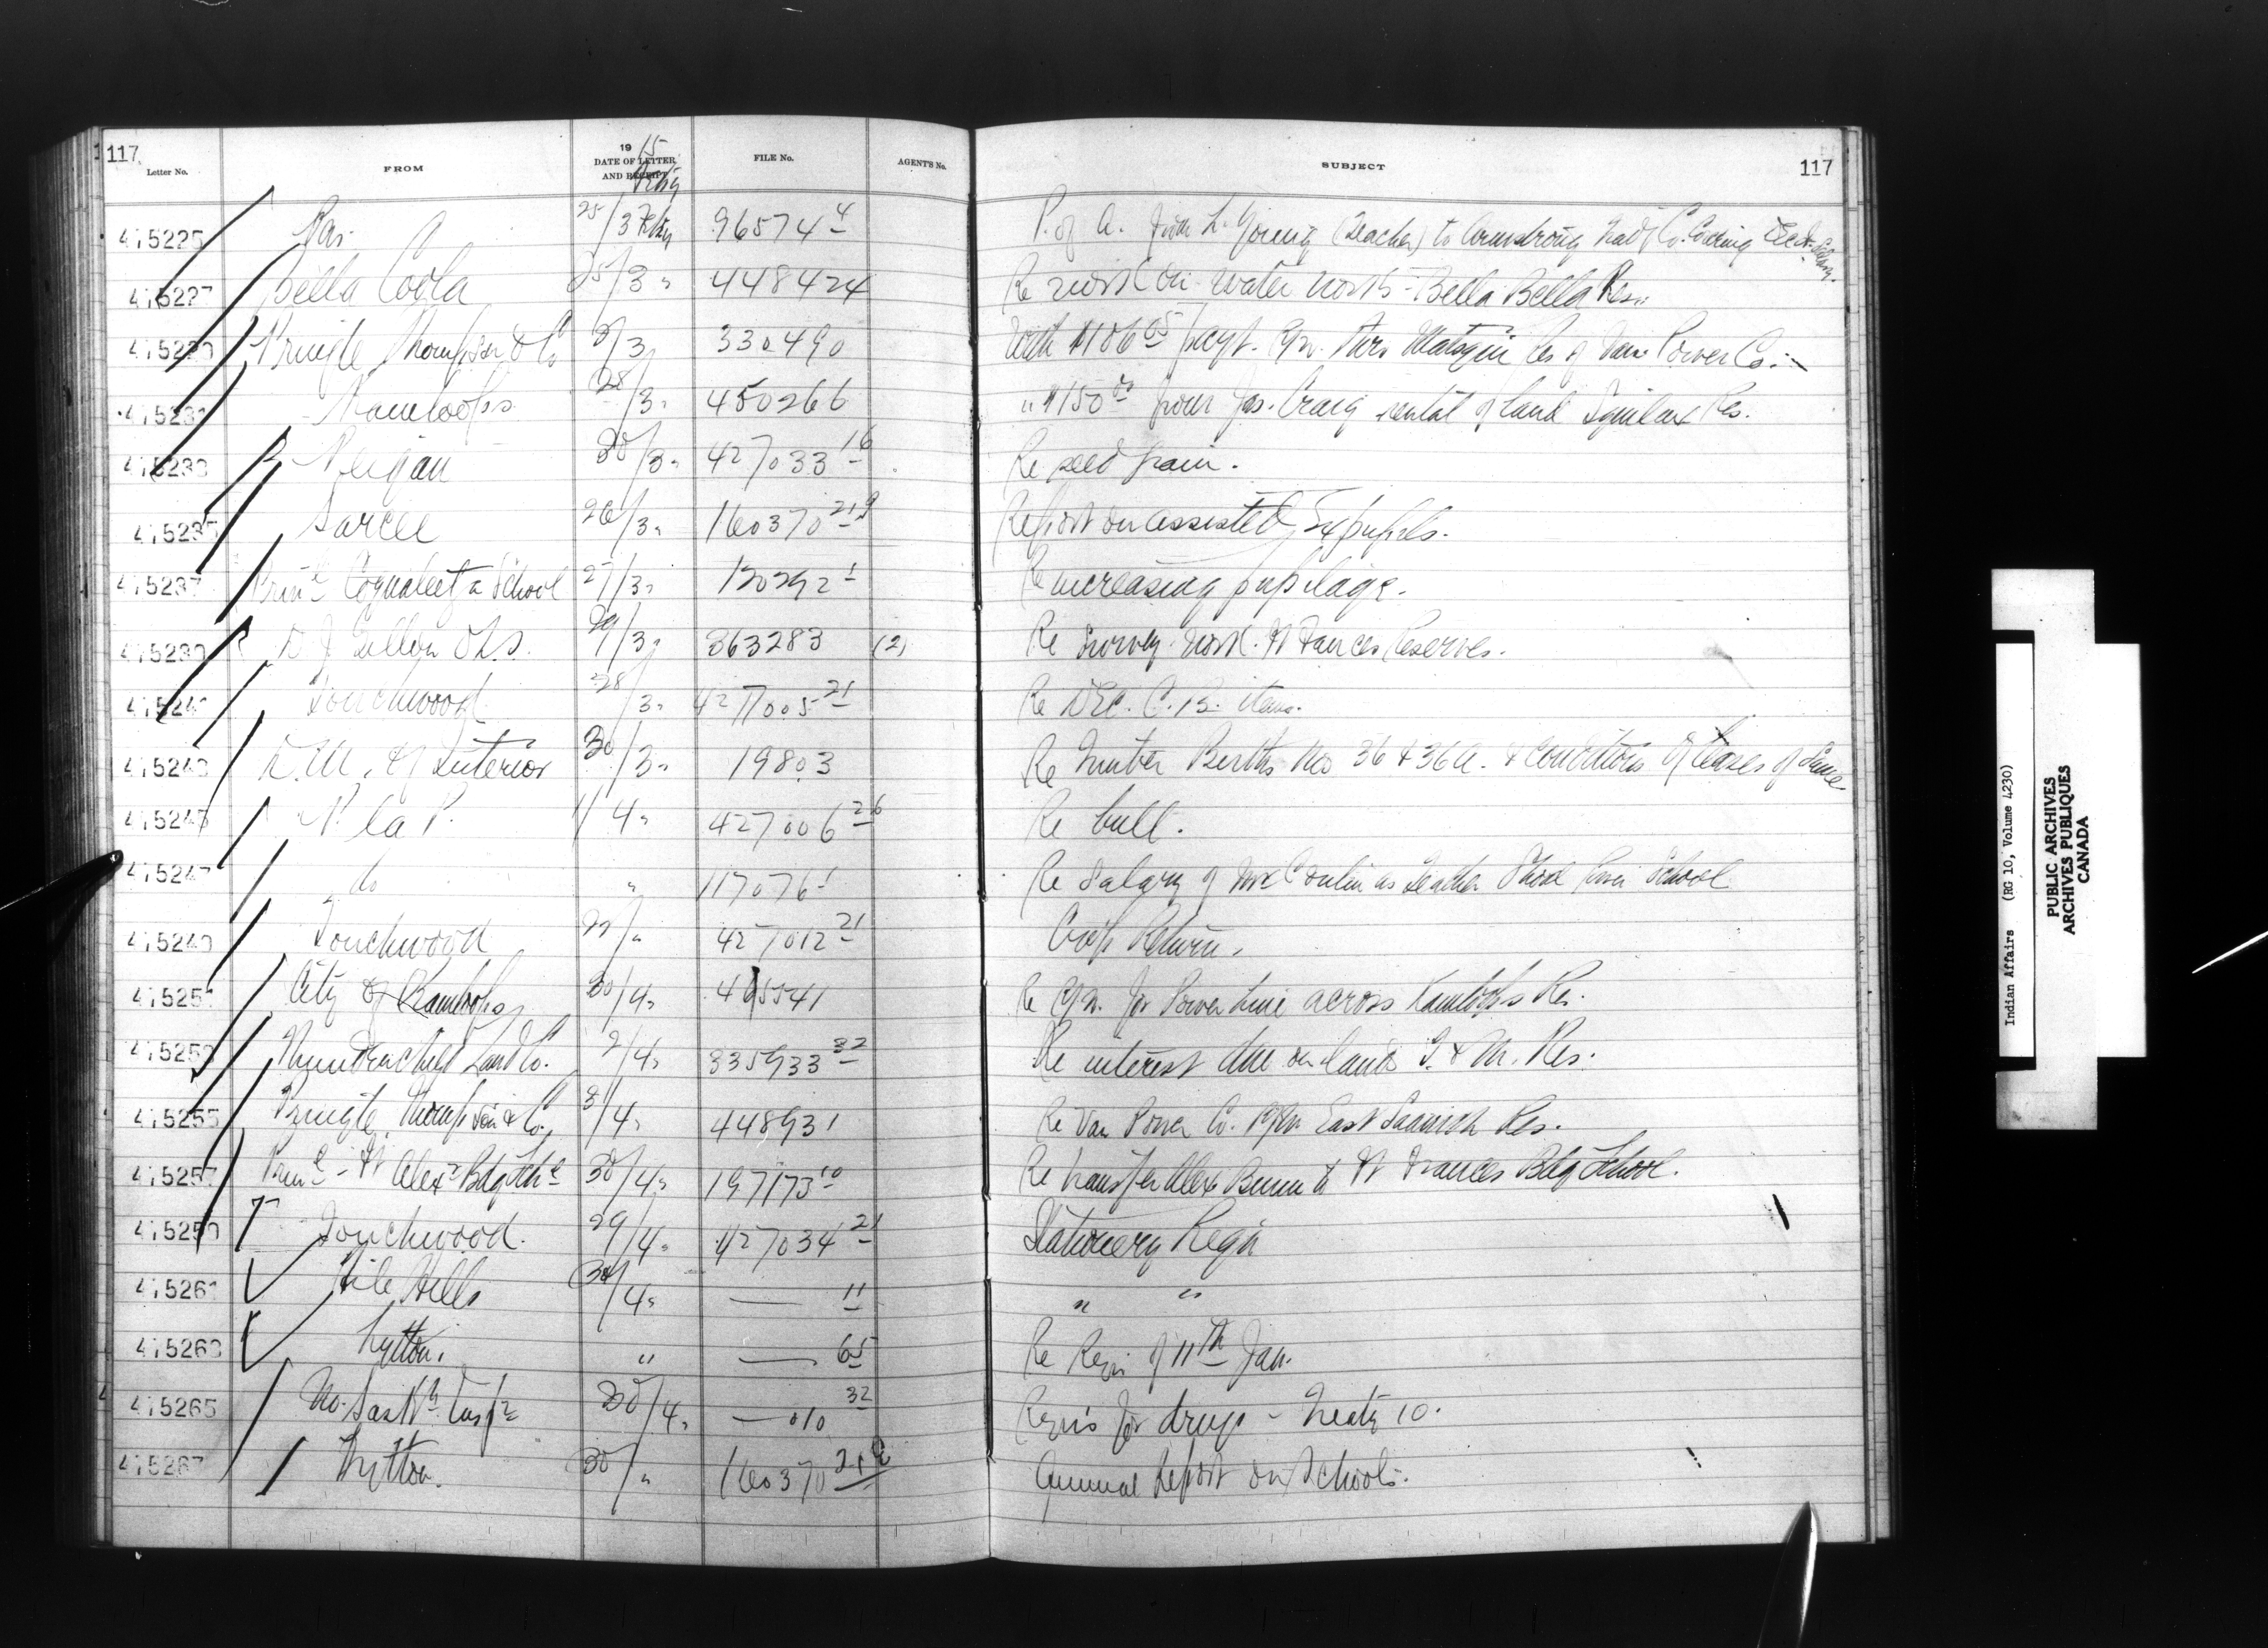 117
Letter No. FROM 1915 DATE OF LETTER AND RECEIPT FILE No. AGENT'S No. SUBJECT 117
415225 Pas 25/3 96574 4 P. of A. from L. Young (Teacher) to Armstrong Co.
415227 Bella Coola 25/3 " 448424 Re work on water works - Bella Bella Res.
Pringle Thompson & Co /3 330490 With $106 65 payt. R/W. thro Matsqui Res of Van. Power Co.
Kamloops 28/3 " 450266 " $150 00 from Jas. Craig rental of land Squilax Res.
Peigan 30/3 " 427033 16 Re seed grain.
415235 Sarcee 26/3 " 160370 21 9 Report on assisted Ex pupils.
415237 Prinl Coqualeetza School 27/3 " 120292 1 Re increasing pupilage.
O.L.S. 29/3 " 363283 (2) Re Survey work. Ft Frances Reserves.
Touchwood 28/3 " 427005 21 Re Dec. C. B. items.
D.M. of Interior 30/3 " 19803 Re Timber Berths Nos 36 & 36A. & conditions of leases of same
415245 P. la P. 1/4 " 427006 26 Re bull.
415247 do " 117076 1 Re Salary of as Teacher School
Touchwood /" 427012 21 Crop Return.
City of Kamloops 30/4 " 415541 Re R/W. for Power line across Kamloops Res.
Land Co. 2/4 " 335933 32 Re interest due on lands
415255 Pringle, Thompson & Co. 31/4 " 448931 Re Van Power Co. R/W East Saanich Res.
415257 Prinl - Ft Alexr Bdg Schl 30/4 " 197173 10 Re transfer Alex to Ft Frances Bdg School.
Touchwood. 29/4 " 427034 21 Stationery Reqn
415261 File Hills 30/4 " — 11 " "
415263 Lytton. " — 65 Re Reqn of 11th Jan.
415265 No. Sask. Inspte 30/4 " — 010 32 Reqns for drugs - Treaty 10.
415267 Lytton. 30/" 160370 21 Annual Report on Schools.
Indian Affairs (RG 10, Volume 4230)
PUBLIC ARCHIVES
ARCHIVES PUBLIQUES
CANADA